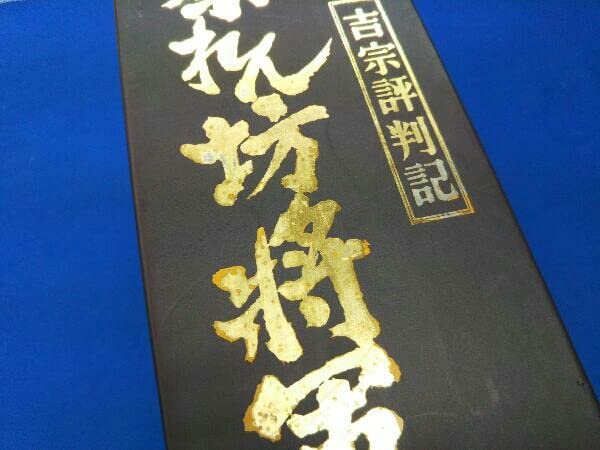 吉宗評判記
暴れん坊将軍